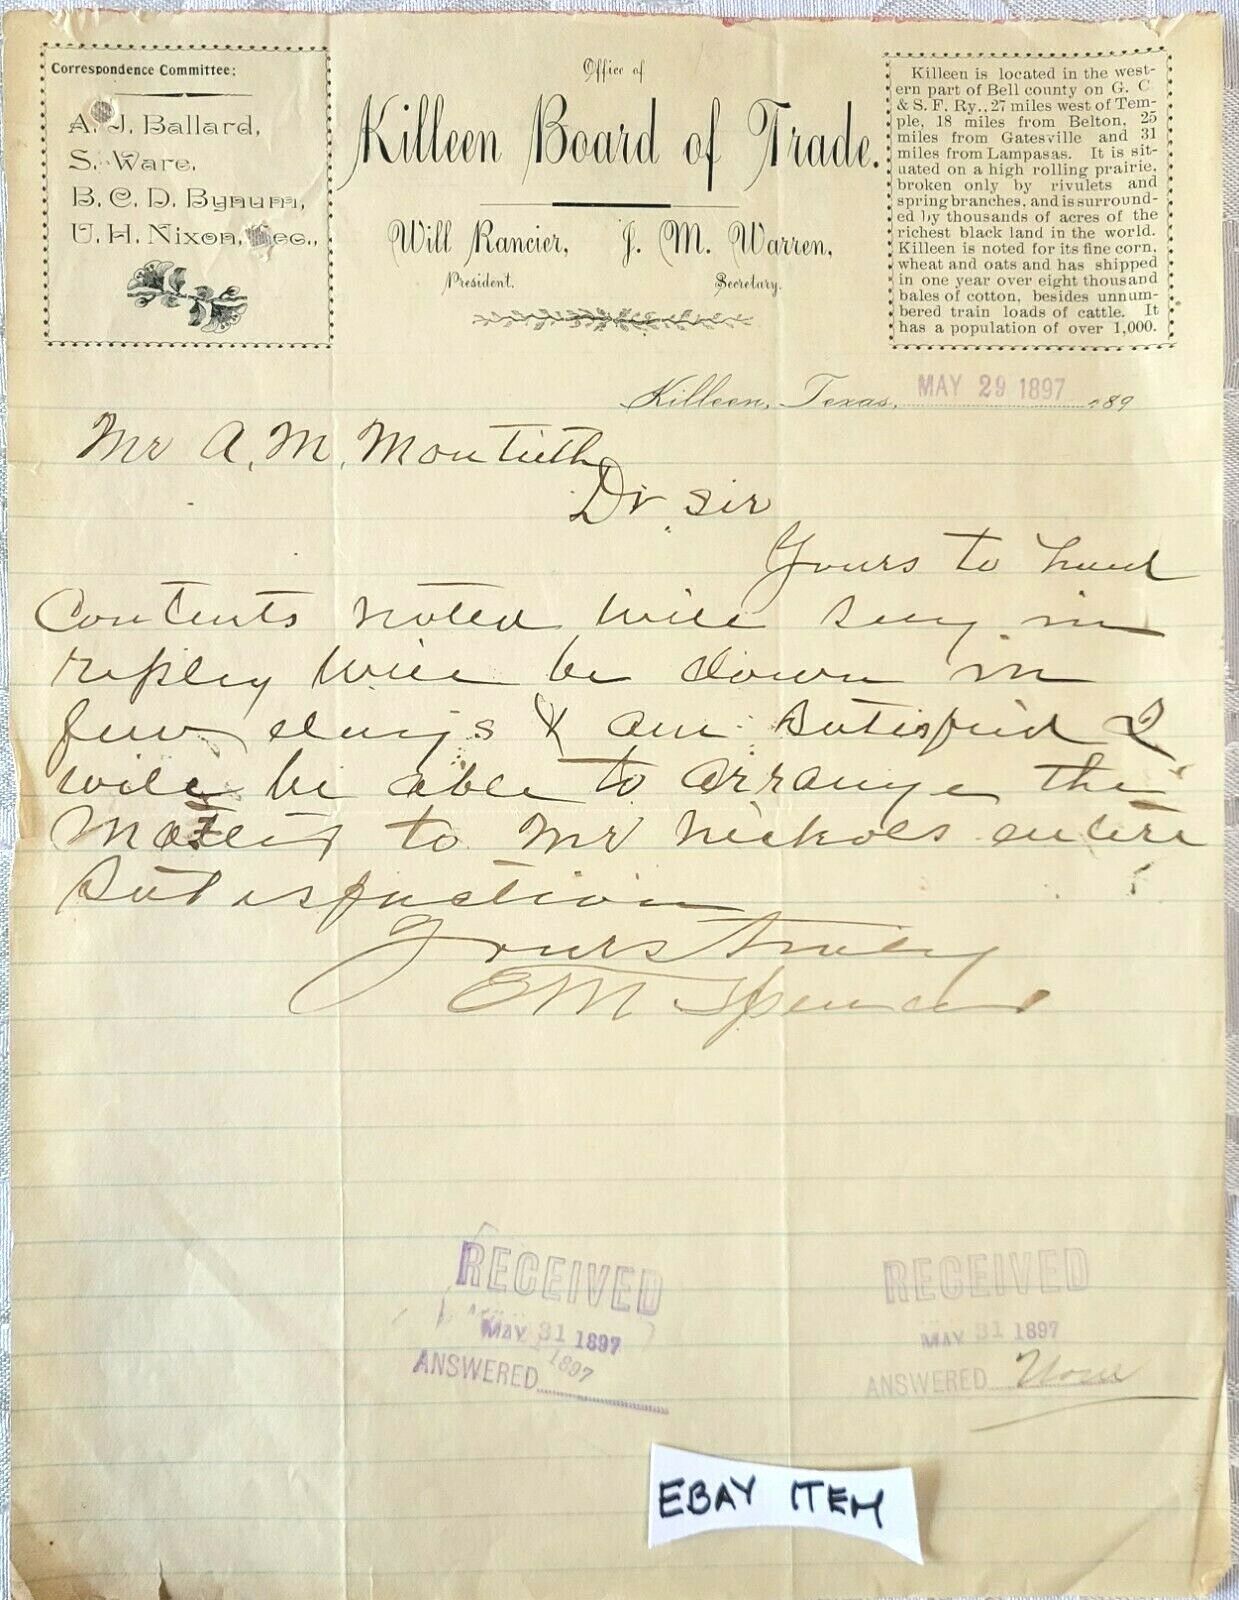 Correspondence Committee:
A. J. Ballard,
S. Ware,
B. C. D. Bynum,
U. H. Nixon, Sec.,
Office of
Killeen Board of Trade.
Will Rancier,
President.
J. M. Warren,
Secretary.
Killeen is located in the west-
ern part of Bell county on G. C
& S. F. Ry., 27 miles west of Tem-
ple, 18 miles from Belton, 25
miles from Gatesville and 31
miles from Lampasas. It is sit-
uated on a high rolling prairie,
broken only by rivulets and
spring branches, and is surround-
ed by thousands of acres of the
richest black land in the world.
Killeen is noted for its fine corn,
wheat and oats and has shipped
in one year over eight thousand
bales of cotton, besides unnum-
bered train loads of cattle. It
has a population of over 1,000.
Killeen, Texas, MAY 29 1897 189
Mr A. M. Montieth
Dr Sir
Yours to hand
Contents noted will say in
reply will be down in
few days & am satisfied I
will be able to arrange the
to Mr Nichols entire
satisfaction
Yours truly
E M Spencer
RECEIVED
MAY 31 1897
1897
ANSWERED
RECEIVED
MAY 31 1897
ANSWERED
EBAY ITEM